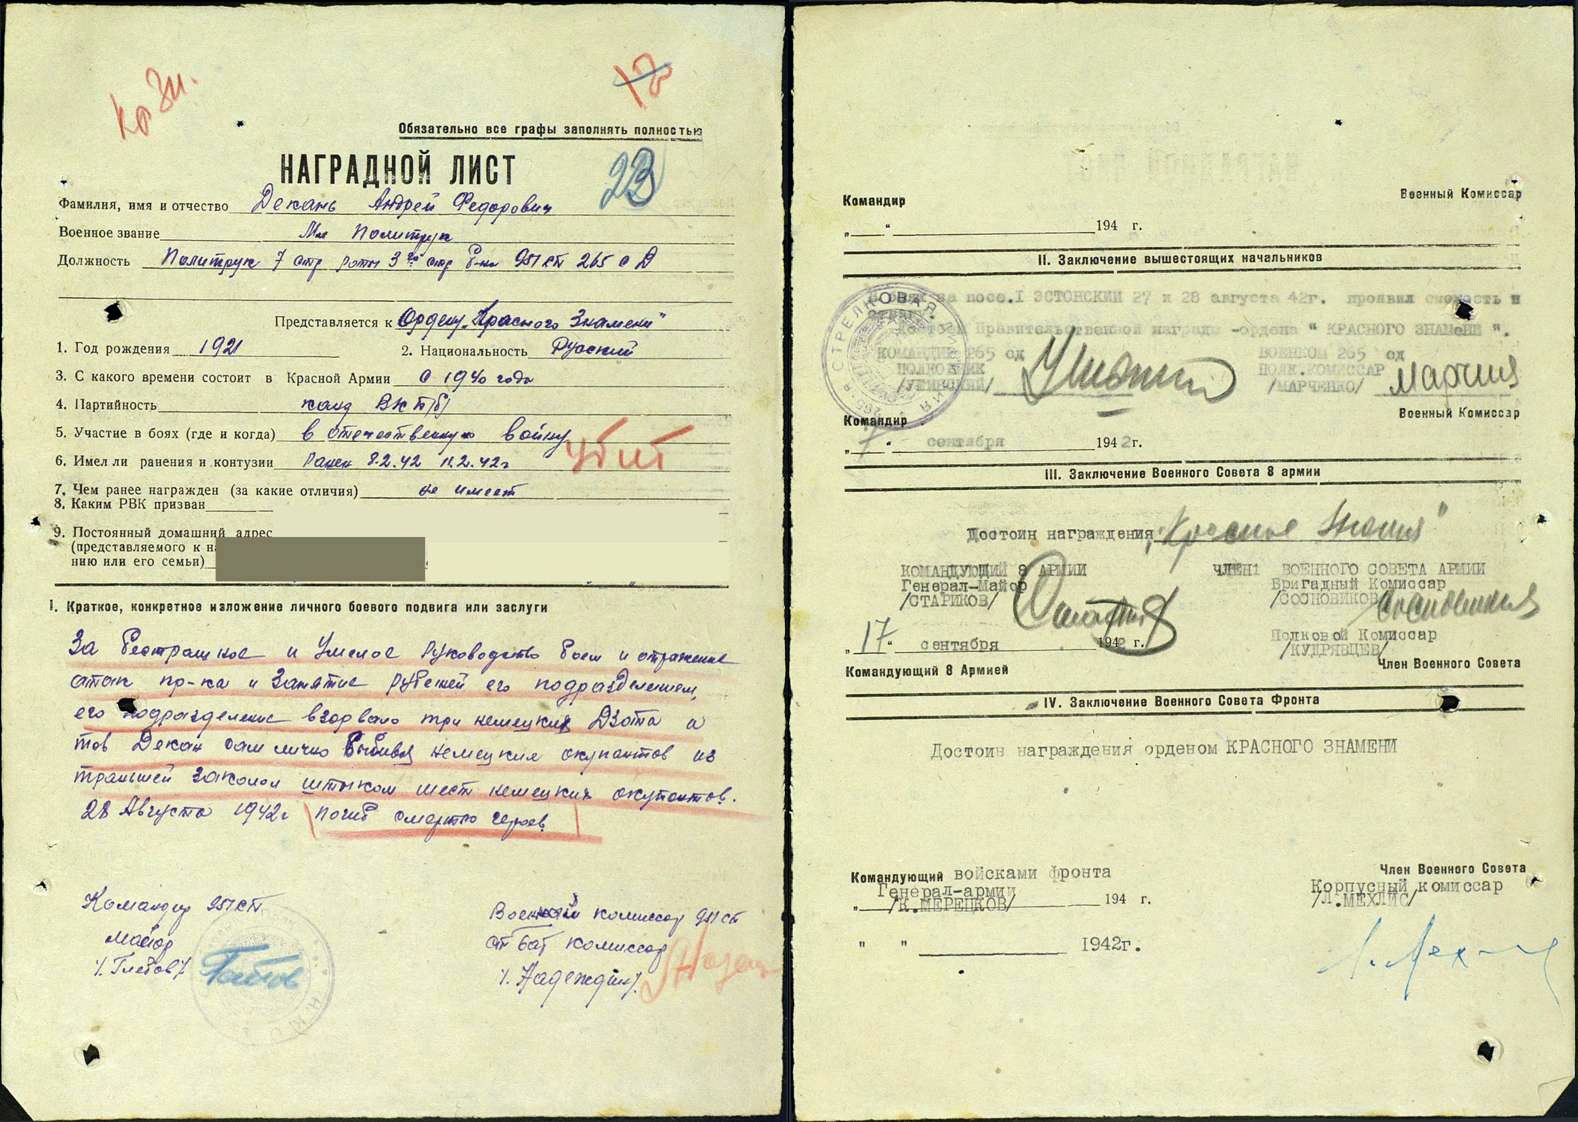 Кр Зн.
12
Обязательно все графы заполнять полностью
НАГРАДНОЙ ЛИСТ
23
Фамилия, имя и отчество Декань Андрей Федорович
Военное звание Мл Политрук
Должность Политрук 7 стр роты 3го стр б-на 951 СП 265 с Д
Представляется к Ордену "Красного Знамени"
1. Год рождения 1921 2. Национальность Русский
3. С какого времени состоит в Красной Армии с 1940 года
4. Партийность канд ВКП(б)
5. Участие в боях (где и когда) в отечественную войну
убит
6. Имел ли ранения и контузии Ранен 8.2.42 11.2.42г
7. Чем ранее награжден (за какие отличия) не имеет
8. Каким РВК призван
9. Постоянный домашний адрес
(представляемого к н
нию или его семьи)
I. Краткое, конкретное изложение личного боевого подвига или заслуги
За бестрашное и Умелое руководство боем и отражение
атак пр-ка и Занятие рубежей его подразделением,
его подразделение взорвало три немецких Дзота и
тов Декан сам лично выбивая немецких окупантов из
траншей заколол штыком шест немецких окупантов.
28 Августа 1942г погиб смертю героев
Командир 951 СП
майор
/Глебов/
Военный комиссар 951 СП
ст бат комиссар
/Надеждин/
Командир Военный Комиссар
„ “ 194 г.
II. Заключение вышестоящих начальников
В боях за пос. I ЭСТОНСКИЙ 27 и 28 августа 42г. проявил смелость и
Достоин Правительственной награды -ордена " КРАСНОГО ЗНАМЕНИ ".
КОМАНДИР 265 сд ВОЕНКОМ 265 сд
ПОЛКОВНИК ПОЛК.КОМИССАР
/УШИНСКИЙ/ /МАРЧЕНКО/
СТРЕЛКОВАЯ ДИВИЗИЯ
Командир Военный Комиссар
„ 7 “ сентября 1942г.
III. Заключение Военного Совета 8 армии
Достоин награждения „Красное Знамя"
КОМАНДУЮЩИЙ 8 АРМИИ ЧЛЕНЫ ВОЕННОГО СОВЕТА АРМИИ
Генерал-Майор Бригадный Комиссар
/СТАРИКОВ/ /СОСНОВИКОВ/
„ 17 “ сентября 1942 г. Полковой Комиссар
/КУДРЯВЦЕВ/
Командующий 8 Армией Член Военного Совета
IV. Заключение Военного Совета Фронта
Достоин награждения орденом КРАСНОГО ЗНАМЕНИ
Командующий войсками фронта Член Военного Совета
Генерал-армии Корпусный комиссар
/К.МЕРЕЦКОВ/ 194 г. /Л.МЕХЛИС/
" " 1942г.